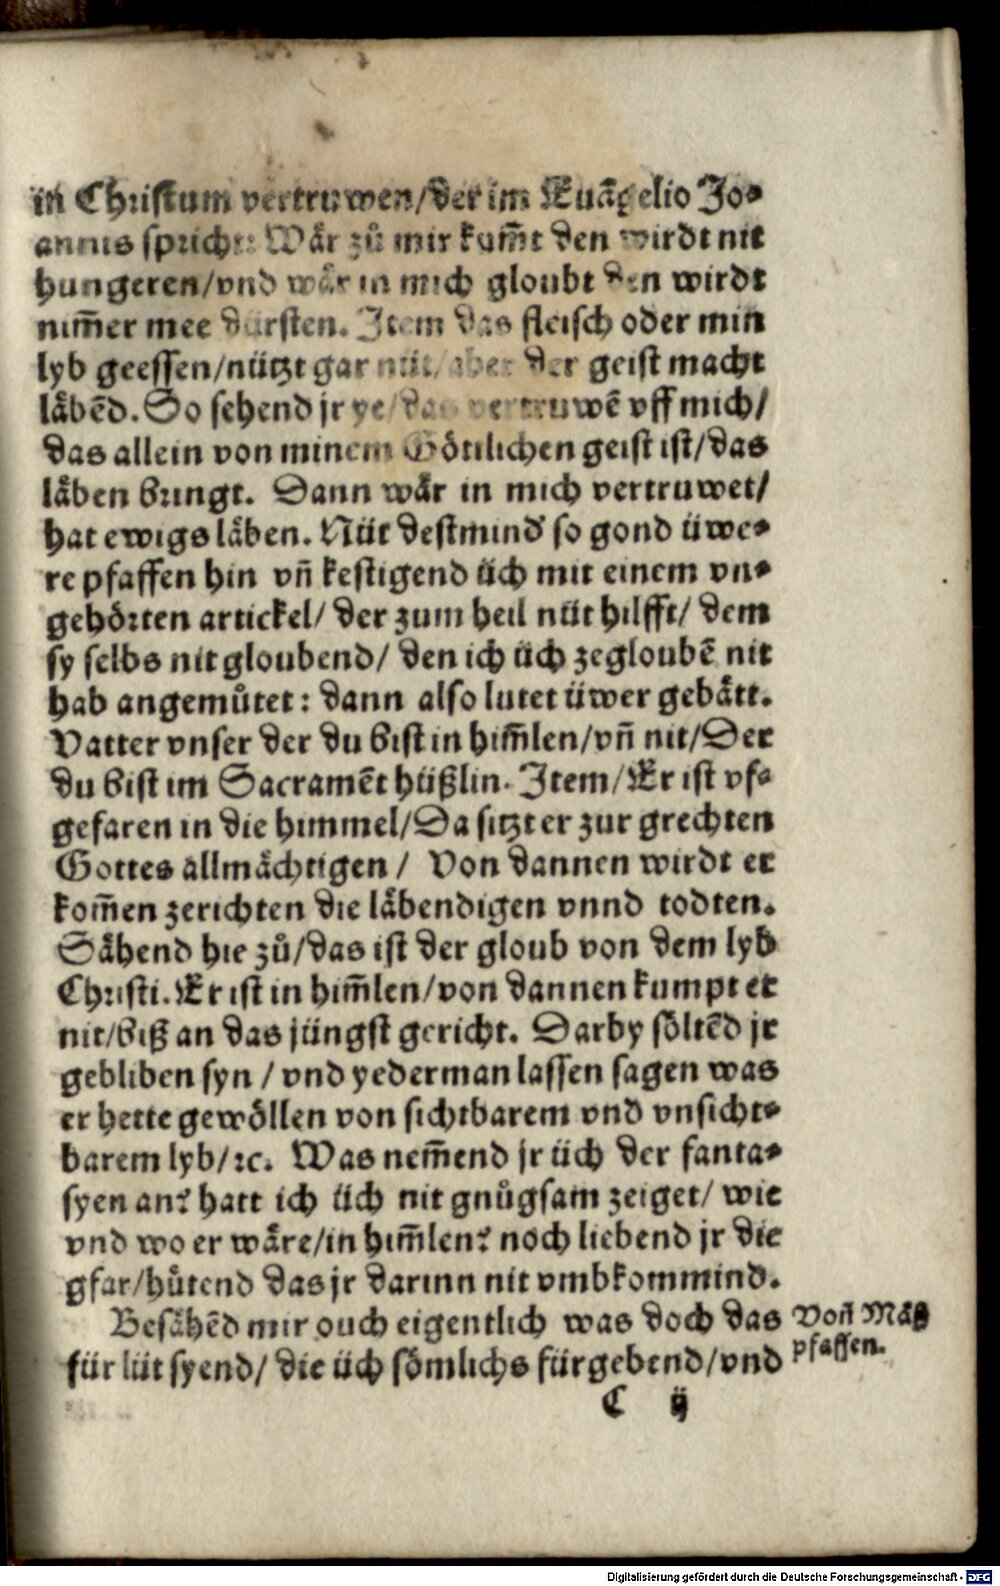 in Christum vertruwen/der im Euãgelio Jo-
annis spricht: Wår zů mir kum̃t den wirdt nit
hungeren/vnd wår in mich gloubt den wirdt
nim̃er mee dursten. Item das fleisch oder min
lyb geessen/nützt gar nüt/aber der geist macht
låbẽd. So sehend jr ye/das vertruwẽ vff mich/
das allein von minem Göttlichen geist ist/das
låben bringt. Dann wår in mich vertruwet/
hat ewigs låben. Nüt destmind so gond üwe-
re pfaffen hin vñ kestigend üch mit einem vn-
gehörten artickel/ der zum heil nüt hilfft/ dem
sy selbs nit gloubend/ den ich üch zegloubẽ nit
hab angemůtet: dann also lutet üwer gebått.
Vatter vnser der du bist in him̃len/vñ nit/Der
du bist im Sacramẽt hüßlin. Item/Er ist vf-
gefaren in die himmel/Da sitzt er zur grechten
Gottes allmåchtigen/ Von dannen wirdt er
kom̃en zerichten die låbendigen vnnd todten.
Såhend hie zů/das ist der gloub von dem lyb
Christi. Er ist in him̃len/von dannen kumpt er
nit/biß an das jüngst gericht. Darby söltẽd jr
gebliben syn/ vnd yederman lassen sagen was
er hette gewöllen von sichtbarem vnd vnsicht-
barem lyb/ꝛc. Was nem̃end jr üch der fanta-
syen an? hatt ich üch nit gnůgsam zeiget/ wie
vnd wo er wåre/in him̃len? noch liebend jr die
gfar/hůtend das jr darinn nit vmbkommind.
Besåhẽd mir ouch eigentlich was doch das
für lüt syend/ die üch sömlichs fürgebend/vnd
Von Måß
pfaffen.
C ij
Digitalisierung gefördert durch die Deutsche Forschungsgemeinschaft - DFG